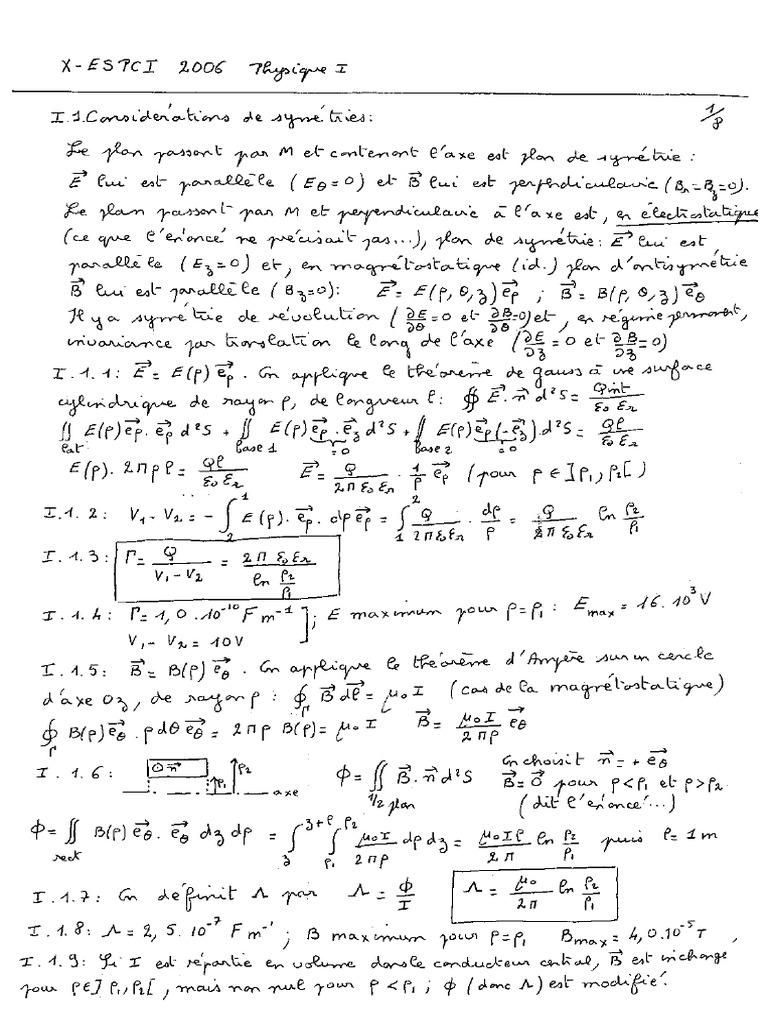 X-ESPCI 2006 Physique I
I.1. Considérations de symétries: 1/8
Le plan passant par M et contenant l'axe est plan de symétrie :
E⃗ lui est parallèle (Eθ=0) et B⃗ lui est perpendiculaire (Br=Bz=0).
Le plan passant par M et perpendiculaire à l'axe est, en électrostatique
(ce que l'énoncé ne précisait pas...), plan de symétrie: E⃗ lui est
parallèle (Ez=0) et, en magnétostatique (id.) plan d'antisymétrie
B⃗ lui est parallèle (Bz=0): E⃗ = E(ρ, θ, z) e⃗ρ ; B⃗ = B(ρ, θ, z) e⃗θ
Il y a symétrie de révolution (∂E/∂θ = 0 et ∂B/∂θ = 0) et, en régime permanent,
invariance par translation le long de l'axe (∂E/∂z = 0 et ∂B/∂z = 0)
I.1.1: E⃗ = E(ρ) e⃗ρ. On applique le théorème de gauss à une surface
cylindrique de rayon ρ, de longueur l: ∯ E⃗.n⃗ d²S = Qint/(ε0 εr)
∬lat E(ρ) e⃗ρ.e⃗ρ d²S + ∬base 1 E(ρ) e⃗ρ.e⃗z d²S (=0) + ∬base 2 E(ρ) e⃗ρ.(-e⃗z).d²S (=0) = Ql/(ε0 εr)
E(ρ).2πρl = Ql/(ε0 εr) E⃗ = Q/(2π ε0 εr) . 1/ρ e⃗ρ (pour ρ ∈ ]ρ1, ρ2[)
I.1.2: V1-V2 = -∫₂¹ E(ρ).e⃗ρ.dρ e⃗ρ = ∫₁² Q/(2π ε0 εr) . dρ/ρ = Q/(2π ε0 εr) ln ρ2/ρ1
I.1.3: Γ = Q/(V1-V2) = 2π ε0 εr/(ln ρ2/ρ1)
I.1.4: Γ = 1,0.10⁻¹⁰ F m⁻¹ ]; E maximum pour ρ=ρ1 : Emax = 16.10³ V
V1 - V2 = 10V
I.1.5: B⃗ = B(ρ) e⃗θ. On applique le théorème d'Ampère sur un cercle
d'axe Oz, de rayon ρ : ∮Γ B⃗ dl⃗ = μ0 I (cas de la magnétostatique)
∮Γ B(ρ) e⃗θ.ρdθ e⃗θ = 2πρ B(ρ) = μ0 I B⃗ = μ0 I/(2πρ) e⃗θ
I.1.6: ⊙ n⃗ ρ1 ρ2 axe ϕ = ∬1/2 plan B⃗.n⃗ d²S On choisit n⃗ = + e⃗θ
B⃗ = 0⃗ pour ρ<ρ1 et ρ>ρ2
(dit l'énoncé...)
ϕ = ∬rect B(ρ) e⃗θ.e⃗θ dz dρ = ∫z^(z+l) ∫ρ1^ρ2 μ0 I/(2πρ) dρ dz = μ0 I l/(2π) ln ρ2/ρ1 puis l = 1 m
I.1.7: On définit Λ par Λ = ϕ/I Λ = μ0/(2π) ln ρ2/ρ1
I.1.8: Λ = 2,5.10⁻⁷ F m⁻¹ ; B maximum pour ρ=ρ1 Bmax = 4,0.10⁻⁵ T,
I.1.9: Si I est répartie en volume dans le conducteur central, B⃗ est inchangé
pour ρ∈] ρ1, ρ2[, mais non nul pour ρ<ρ1 ; ϕ (donc Λ) est modifié.